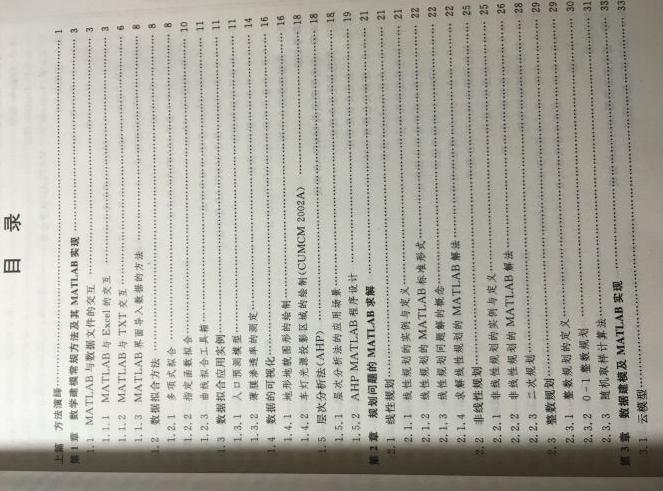 目 录
上篇 方法演绎 1
第1章 数学建模常规方法及其MATLAB实现 3
1.1 MATLAB与数据文件的交互 3
1.1.1 MATLAB与Excel的交互 3
1.1.2 MATLAB与TXT交互 6
1.1.3 MATLAB界面导入数据的方法 8
1.2 数据拟合方法 8
1.2.1 多项式拟合 8
1.2.2 指定函数拟合 10
1.2.3 曲线拟合工具箱 11
1.3 数据拟合应用实例 11
1.3.1 人口预测模型 11
1.3.2 薄膜渗透率的测定 14
1.4 数据的可视化 16
1.4.1 地形地貌图形的绘制 16
1.4.2 车灯光源投影区域的绘制(CUMCM 2002A) 18
1.5 层次分析法(AHP) 18
1.5.1 层次分析法的应用场景 18
1.5.2 AHP MATLAB程序设计 19
第2章 规划问题的MATLAB求解 21
2.1 线性规划 21
2.1.1 线性规划的实例与定义 21
2.1.2 线性规划的MATLAB标准形式 22
2.1.3 线性规划问题解的概念 22
2.1.4 求解线性规划的MATLAB解法 22
2.2 非线性规划 25
2.2.1 非线性规划的实例与定义 25
2.2.2 非线性规划的MATLAB解法 26
2.2.3 二次规划 28
2.3 整数规划 29
2.3.1 整数规划的定义 29
2.3.2 0-1整数规划 30
2.3.3 随机取样计算法 31
第3章 数据建模及MATLAB实现 33
3.1 云模型 33